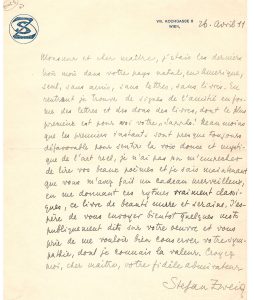 SZ
VIII. KOCHGASSE 8
WIEN
26. avril 11
Monsieur et cher maître, j'étais les derniers
trois mois dans votre pays natal, en Amérique,
seul, sans amis, sans lettres, sans livres. En
rentrant je trouve de signes de l'amitié en for-
mes des lettres et des dons des livres, dont le plus
précieux est pour moi votre "Sanson". Néanmoins
que les premiers instants sont presque toujours
défavorable pour sentir la voix douce et mysti-
que de l'art réel, je n'ai pas pu m'empêcher
de lire vos beaux poèmes et je sais maintenant
que vous m'avez fait un cadeau merveilleux,
en me donnant ces rythmes vraiment classi-
ques, ce livre de beauté mûre et sereine. J'es-
père de vous envoyer bientôt quelques mots
publiquement dits sur votre œuvre et vous
prie de me vouloir bien conserver votre sym-
pathie, dont je connais la valeur. Croyez
moi, cher maître, votre fidèle admirateur
Stefan Zweig